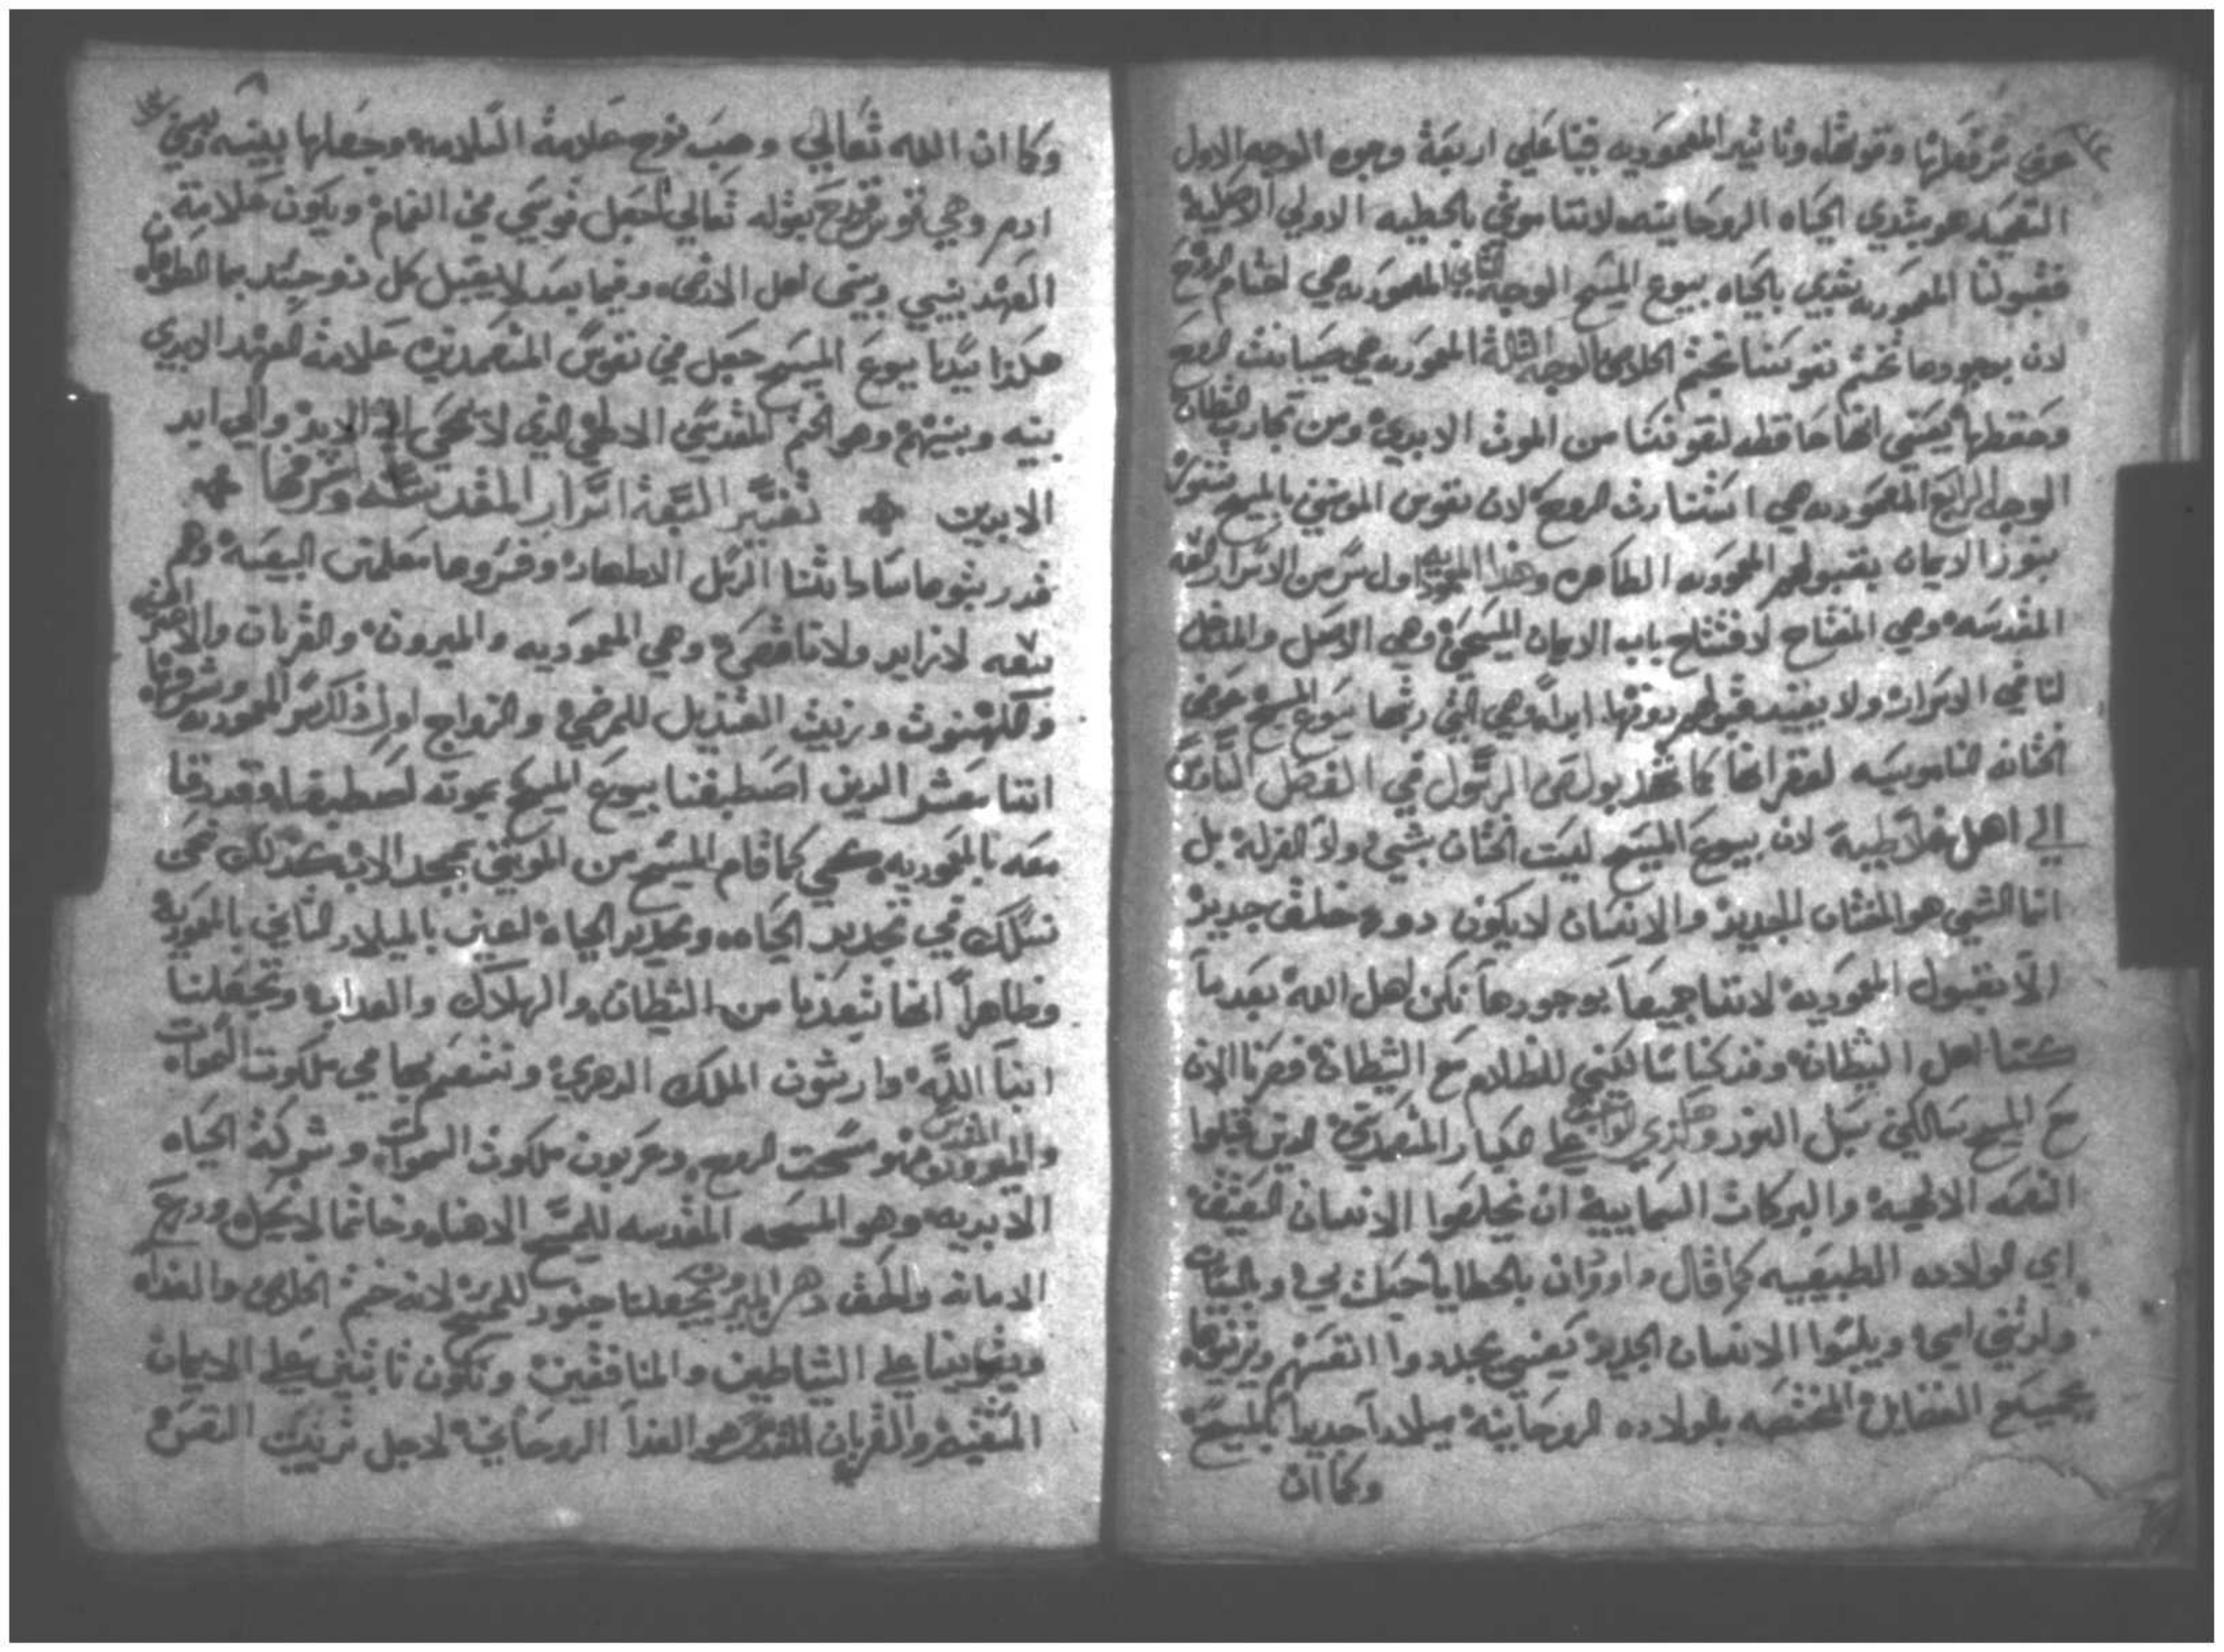 عن شرفعلها وقوتها وتاثير المعموديه فينا علي اربعة وجوه الوجه الاول
التعميد هو مبتدي الحياه الروحانيه لاننا موتي بالخطيه الاولي الاصلية
فقبولنا المعموديه نبتدي بالحياه بيسوع المسيح الوجه الثاني المعموديه هي اختتام الروح
لان بوجودها تختم نفوسنا بختم الخلاص الوجه الثالث المعموديه هي صيانت الروح
وحفظها يعني انها حافظه لنفوسنا من الموت الابدي ومن تجارب الشيطان
الوجه الرابع المعموديه هي استنارت الروح لان نفوس المومنين بالمسيح تتنور
بنور الايمان بقبولهم المعموديه الطاهره وهذا المعموديه اول سر من الاسرار السبعه
المقدسه وهي المفتاح لافتتاح باب الايمان المسيحي وهي الاصل والمدخل
لباقي الاسرار ولا يفيد قبولهم دونها ابدا وهي التي رتبها يسوع المسيح عوض
الختانه الناموسيه لغفرانها كما نجد بولص الرسول في الفصل السادس
الي اهل غلاطية لان بيسوع المسيح ليست الختان بشي ولا الغرلة بل
انما الشي هو الختان الجديد والانسان لا يكون دوره خلق جديد
الا بقبول المعموديه لاننا جميعا بوجودها نكن اهل الله بعد ما
كنا اهل الشيطان وقد كنا سالكين للظلام مع الشيطان فصرنا الان
مع المسيح سالكين سبل النور وهكذي الواجب علي صغار المتعمدين الذين قبلوا
النعمه الالهيه والبركات السماييه ان يخلعوا الانسان العتيق
اي الولاده الطبيعيه كما قال داوود ان بالخطايا حبلت بي وبالسيات
ولدتني امي ويلبسوا الانسان الجديد يعني يجددوا انفسهم ويزينوها
بجميع الفضايل المختصه بالولاده الروحانية ميلادا جديدا بالمسيح
وكما ان
وكما ان الله تعالي وهب نوح علامة السلامه وجعلها بينه وبين بني
ادم وهي قوس قزح بقوله تعالي اجعل قوسي في الغمام ويكون علامة
العهد بيني وبين اهل الارض وفيما بعد لا يقتبل كل ذو جسد بما الطوفان
هكذا سيدنا يسوع المسيح جعل في نفوس المتعمدين علامة العهد الابدي
بينه وبينهم وهو الختم المقدس الالهي الذي لا يمحي الي الابد والي ابد
الابدين ✤ تفسير السبعة اسرار المقدسة وشرفها ✤
قد رتبوها ساداتنا الرسل الاطهار وفسروها معلمين البيعة وهم
سبعه لا زايد ولا ناقص وهي المعموديه والميرون والقربان والاعتراف
والكهنوت وزيت القنديل للمرضي والزواج اول ذلك سر المعموديه وشرفها
اننا معشر الذين اصطبغنا بيسوع المسيح بموته اصطبغنا وقد دفنا
معه بالمعموديه لكي كما قام المسيح من الموتي بمجد الاب كذلك نحن
نسلك في تجديد الحياه وتجديد الحياه لعين بالميلاد الثاني بالمعموديه
وظاهرا انها تبعدنا من الشيطان والهلاك والعداب وتجعلنا
ابنا الله وارثون الملك الدهري ونتنعم بها في ملكوت السموات
والميرون هو مسحت الروح المقدس وعربون ملكوت السموات وشركة الحياه
الابديه وهو المسحه المقدسه للمسيح الاهنا وخاتما لانجيل ودرع
الامانه والحق دهن الميرون يجعلنا جنود للمسيح لانه ختم الخلاص والفداه
ويقوينا علي الشياطين والمنافقين ونكون ثابتين علي الايمان
المستقيم والقربان المقدس هو الغدا الروحاني لاجل تربيت النفس